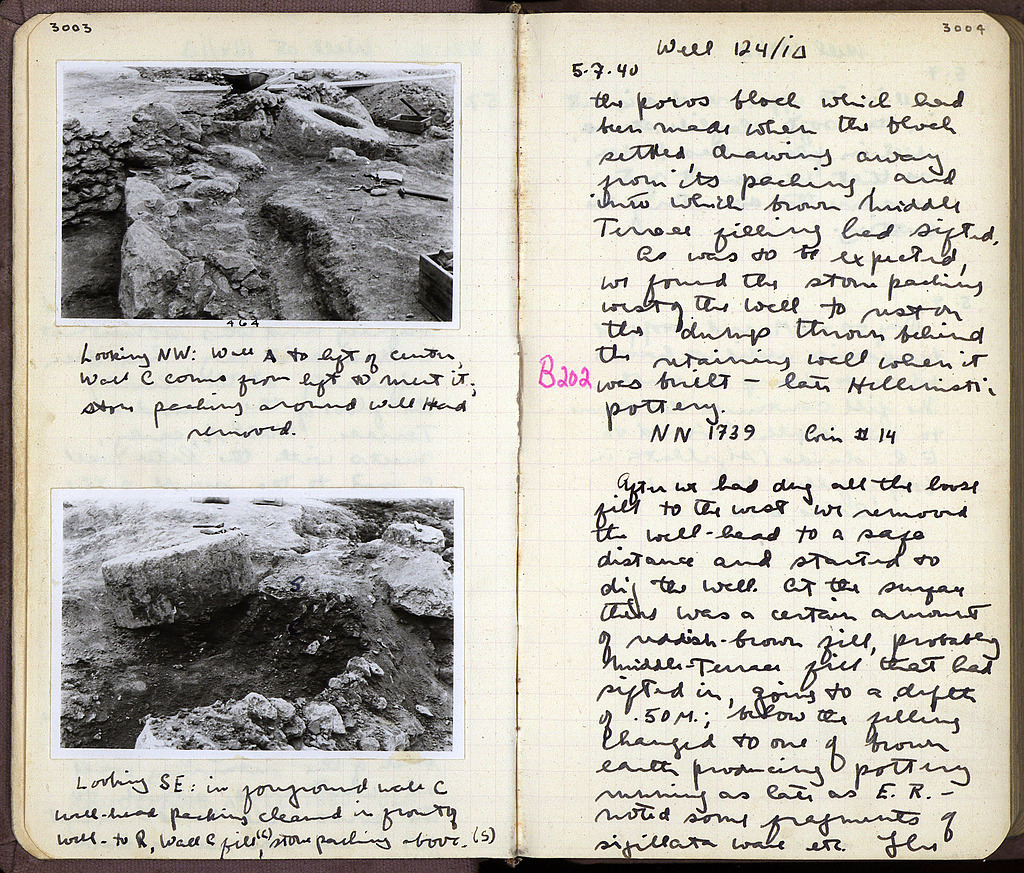 3003
464
Looking NW: Wall A to left of center,
Wall C comes from left to meet it;
stone packing around well Head
removed.
S
Looking SE: in foreground wall C
well-head packing cleaned in front of
well - to R, Wall C fill (C), stone packing above. (S)
3004
Well 124/ΙΔ
5.7.40
the poros block which had
been made when the block
settled, drawing away
from its packing, and
into which brown Middle
Terrace filling had sifted.
As was to be expected,
we found the stone packing
west of the well to rest on
the dump thrown behind
the retaining wall when it
B202
was built – late Hellenistic
pottery.
NN 1739 Coin # 14
After we had dug all the loose
fill to the west we removed
the well-head to a safe
distance and started to
dig the well. At the surface
there was a certain amount
of reddish-brown fill, probably
Middle-Terrace fill that had
sifted in, going to a depth
of .50 M.; below the filling
changed to one of brown
earth producing pottery
running as late as E. R. –
noted some fragments of
sigillata ware etc. This